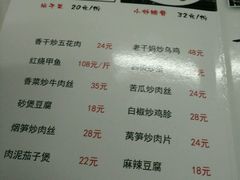 20元/份
小炒猪脚 32元/份
香干炒五花肉 24元
老干妈炒乌鸡 48元
红烧甲鱼 108元/斤
28元
香菜炒牛肉丝 35元
苦瓜炒肉丝 24元
砂煲豆腐 18元
白椒炒鸡胗 28元
烟笋炒肉丝 28元
莴笋炒肉片 24元
肉泥茄子煲 22元
麻辣豆腐 18元